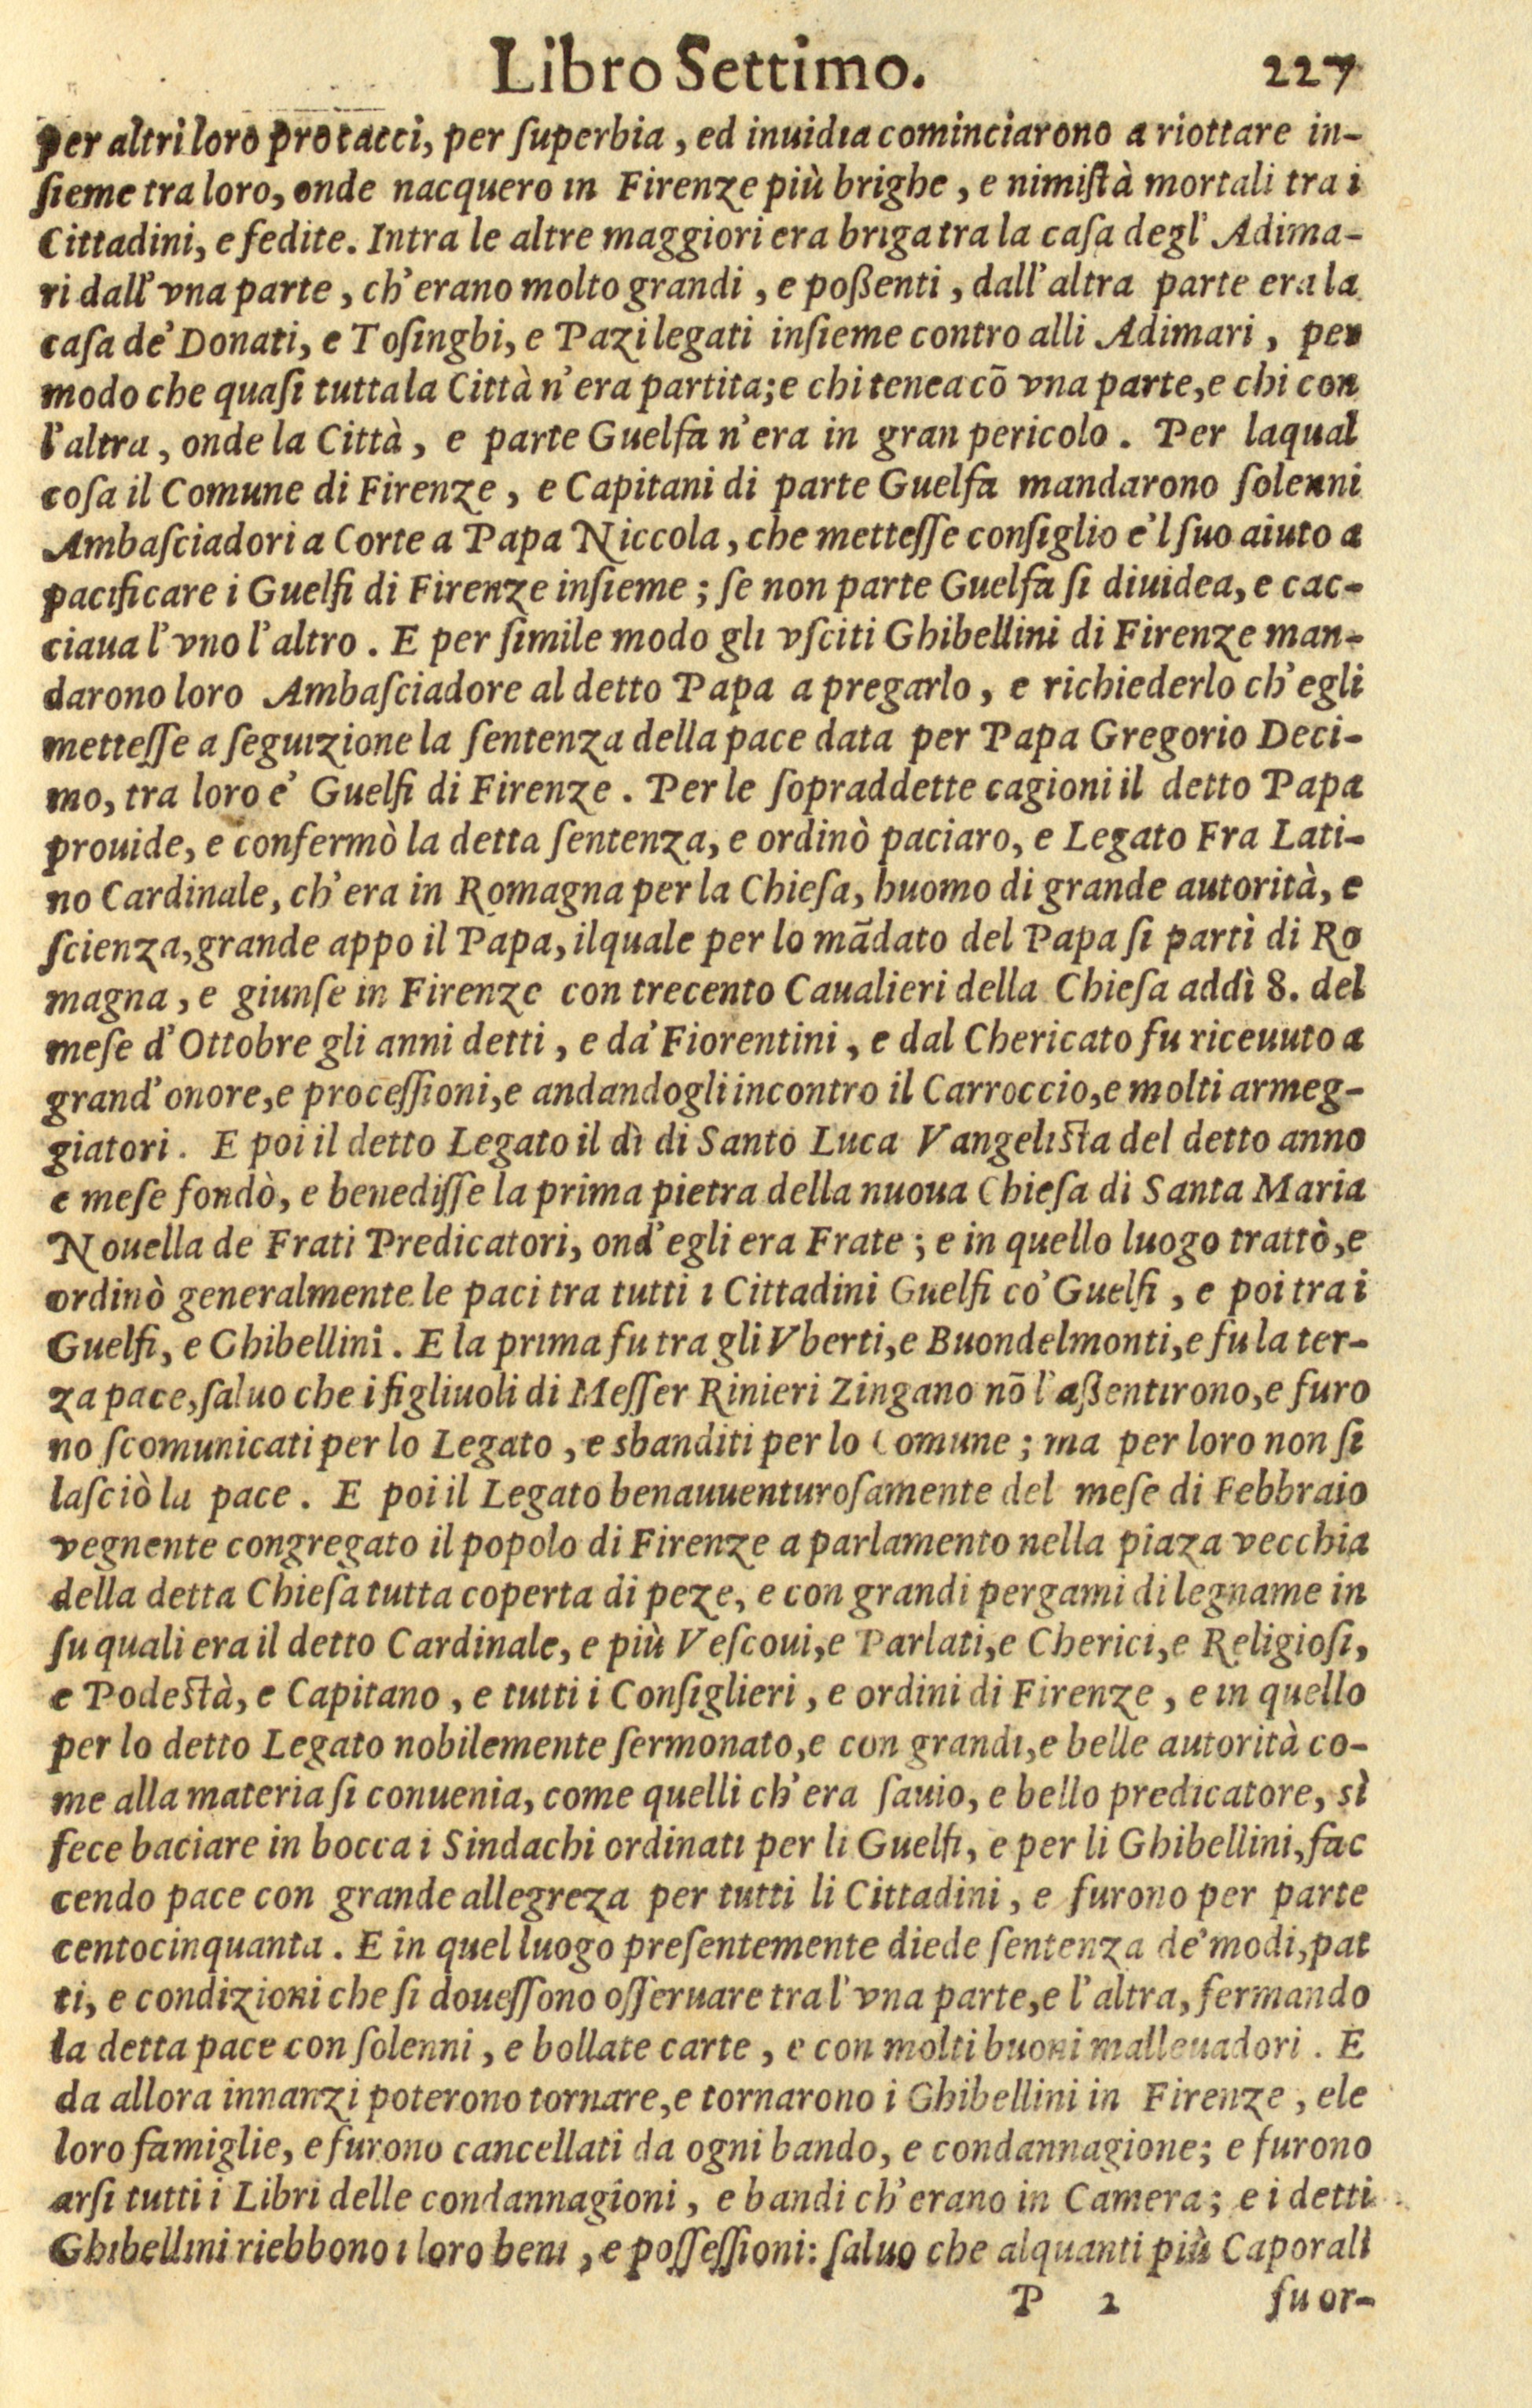 Libro Settimo. 227
per altri loro procacci, per ſuperbia, ed inuidia cominciarono a riottare in-
ſieme tra loro, onde nacquero in Firenze più brighe, e nimiſtà mortali tra i
Cittadini, e fedite. Intra le altre maggiori era briga tra la caſa degl' Adima-
ri dall' vna parte, ch' erano molto grandi, e poßenti, dall' altra parte era la
caſa de' Donati, e Toſinghi, e Pazi legati inſieme contro alli Adimari, per
modo che quaſi tutta la Città n' era partita; e chi tenea cō vna parte, e chi con
l'altra, onde la Città, e parte Guelfa n' era in gran pericolo. Per laqual
coſa il Comune di Firenze, e Capitani di parte Guelfa mandarono ſolenni
Ambaſciadori a Corte a Papa Niccola, che metteſſe conſiglio e'l ſuo aiuto a
pacificare i Guelfi di Firenze inſieme; ſe non parte Guelfa ſi diuidea, e cac-
ciaua l' vno l' altro. E per ſimile modo gli vſciti Ghibellini di Firenze man-
darono loro Ambaſciadore al detto Papa a pregarlo, e richiederlo ch' egli
metteſſe a ſeguizione la ſentenza della pace data per Papa Gregorio Deci-
mo, tra loro e' Guelfi di Firenze. Per le ſopraddette cagioni il detto Papa
prouide, e confermò la detta ſentenza, e ordinò paciaro, e Legato Fra Lati-
no Cardinale, ch' era in Romagna per la Chieſa, huomo di grande autorità, e
ſcienza, grande appo il Papa, ilquale per lo mādato del Papa ſi partì di Ro
magna, e giunſe in Firenze con trecento Caualieri della Chieſa addì 8. del
meſe d' Ottobre gli anni detti, e da' Fiorentini, e dal Chericato fu riceuuto a
grand' onore, e proceſſioni, e andandogli incontro il Carroccio, e molti armeg-
giatori. E poi il detto Legato il dì di Santo Luca Vangeliſta del detto anno
e meſe fondò, e benediſſe la prima pietra della nuoua Chieſa di Santa Maria
Nouella de Frati Predicatori, ond' egli era Frate; e in quello luogo trattò, e
ordinò generalmente le paci tra tutti i Cittadini Guelfi co' Guelfi, e poi tra i
Guelfi, e Ghibellini. E la prima fu tra gli Vberti, e Buondelmonti, e fu la ter-
za pace, ſaluo che i figliuoli di Meſſer Rinieri Zingano nō l' aßentirono, e furo
no ſcomunicati per lo Legato, e sbanditi per lo Comune; ma per loro non ſi
laſciò la pace. E poi il Legato benauuenturoſamente del meſe di Febbraio
vegnente congregato il popolo di Firenze a parlamento nella piaza vecchia
della detta Chieſa tutta coperta di peze, e con grandi pergami di legname in
ſu quali era il detto Cardinale, e più Veſcoui, e Parlati, e Cherici, e Religioſi,
e Podeſtà, e Capitano, e tutti i Conſiglieri, e ordini di Firenze, e in quello
per lo detto Legato nobilemente ſermonato, e con grandi, e belle autorità co-
me alla materia ſi conuenia, come quelli ch' era ſauio, e bello predicatore, sì
fece baciare in bocca i Sindachi ordinati per li Guelfi, e per li Ghibellini, fac
cendo pace con grande allegreza per tutti li Cittadini, e furono per parte
centocinquanta. E in quel luogo preſentemente diede ſentenza de' modi, pat
ti, e condizioni che ſi doueſſono oſſeruare tra l' vna parte, e l' altra, fermando
la detta pace con ſolenni, e bollate carte, e con molti buoni malleuadori. E
da allora innanzi poterono tornare, e tornarono i Ghibellini in Firenze, ele
loro famiglie, e furono cancellati da ogni bando, e condannagione; e furono
arſi tutti i Libri delle condannagioni, e bandi ch' erano in Camera; e i detti
Ghibellini riebbono i loro beni, e poſſeſſioni: ſaluo che alquanti più Caporali
P 2 fu or-